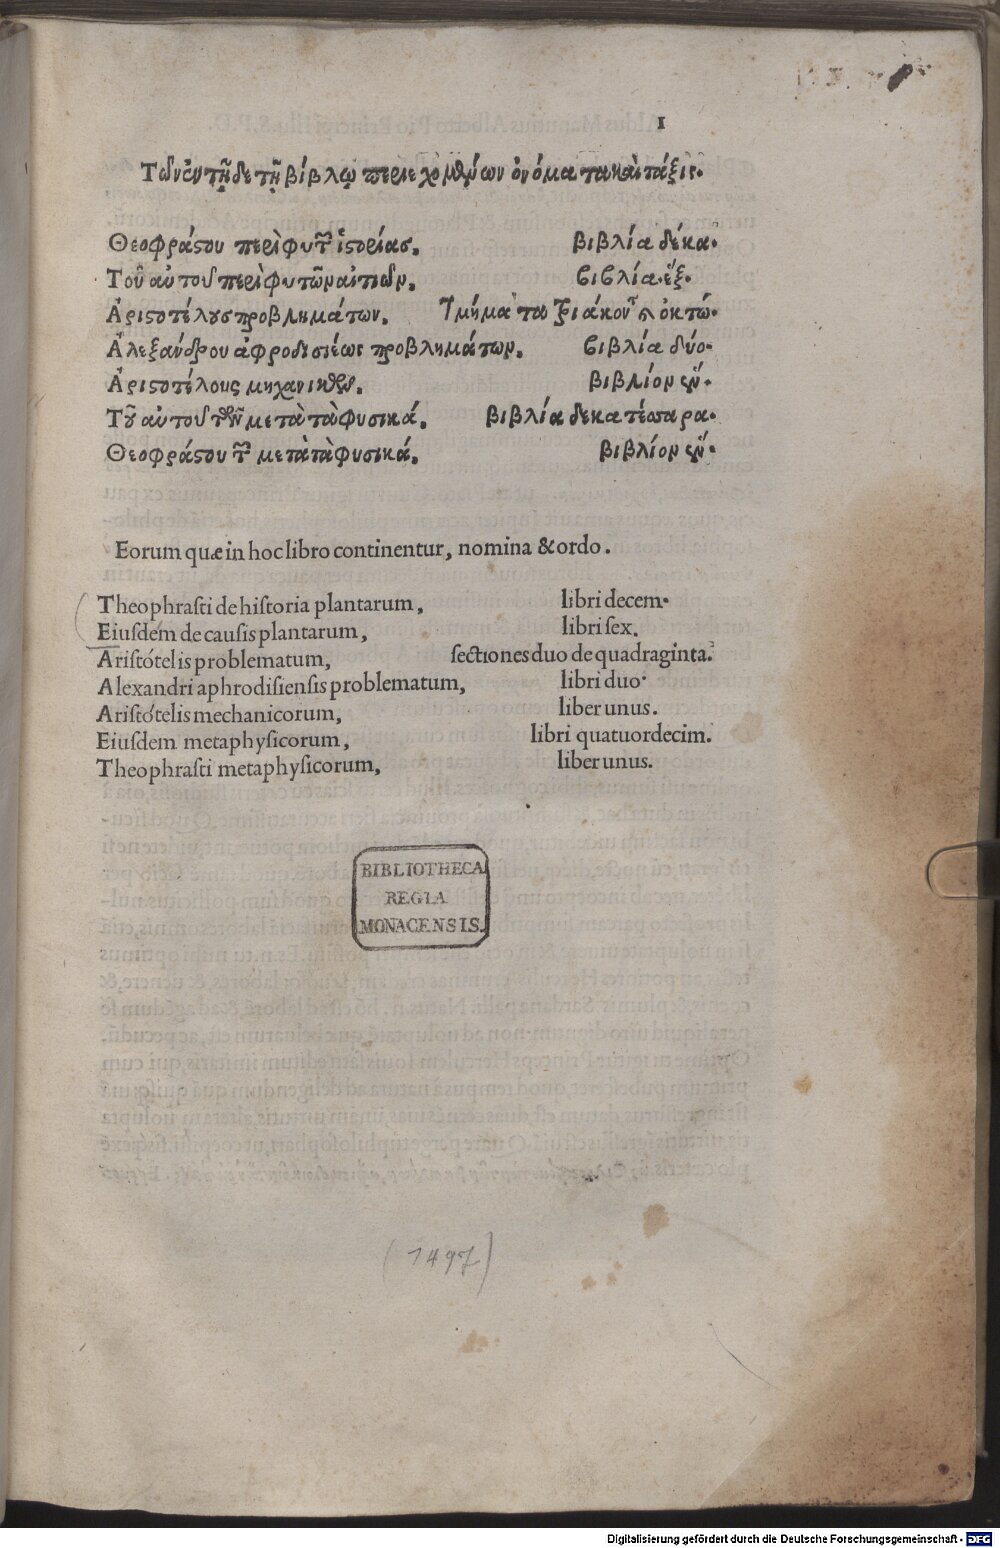 1
Τῶν ἐν τῇδε τῇ βίβλῳ περιεχομένων ὀνόματα καὶ τάξις.
Θεοφράστου περὶ φυτῶν ἱστορίας. βιβλία δέκα.
Τοῦ αὐτοῦ περὶ φυτῶν αἰτιῶν. βιβλία ἕξ.
Ἀριστοτέλους προβλημάτων. τμήματα τριάκοντα ὀκτώ.
Ἀλεξάνδρου ἀφροδισιέως προβλημάτων. βιβλία δύο.
Ἀριστοτέλους μηχανικῶν. βιβλίον ἕν.
Τοῦ αὐτοῦ τῶν μετὰ τὰ φυσικά. βιβλία δεκατέσσαρα.
Θεοφράστου τῶν μετὰ τὰ φυσικά. βιβλίον ἕν.
Eorum quæ in hoc libro continentur, nomina & ordo.
Theophraſti de hiſtoria plantarum, libri decem.
Eiuſdem de cauſis plantarum, libri ſex.
Ariſtótelis problematum, ſectiones duo de quadraginta.
Alexandri aphrodiſienſis problematum, libri duo.
Ariſtótelis mechanicorum, liber unus.
Eiuſdem metaphyſicorum, libri quatuordecim.
Theophraſti metaphyſicorum, liber unus.
BIBLIOTHECA
REGIA
MONACENSIS.
(1497)
Digitalisierung gefördert durch die Deutsche Forschungsgemeinschaft - DFG